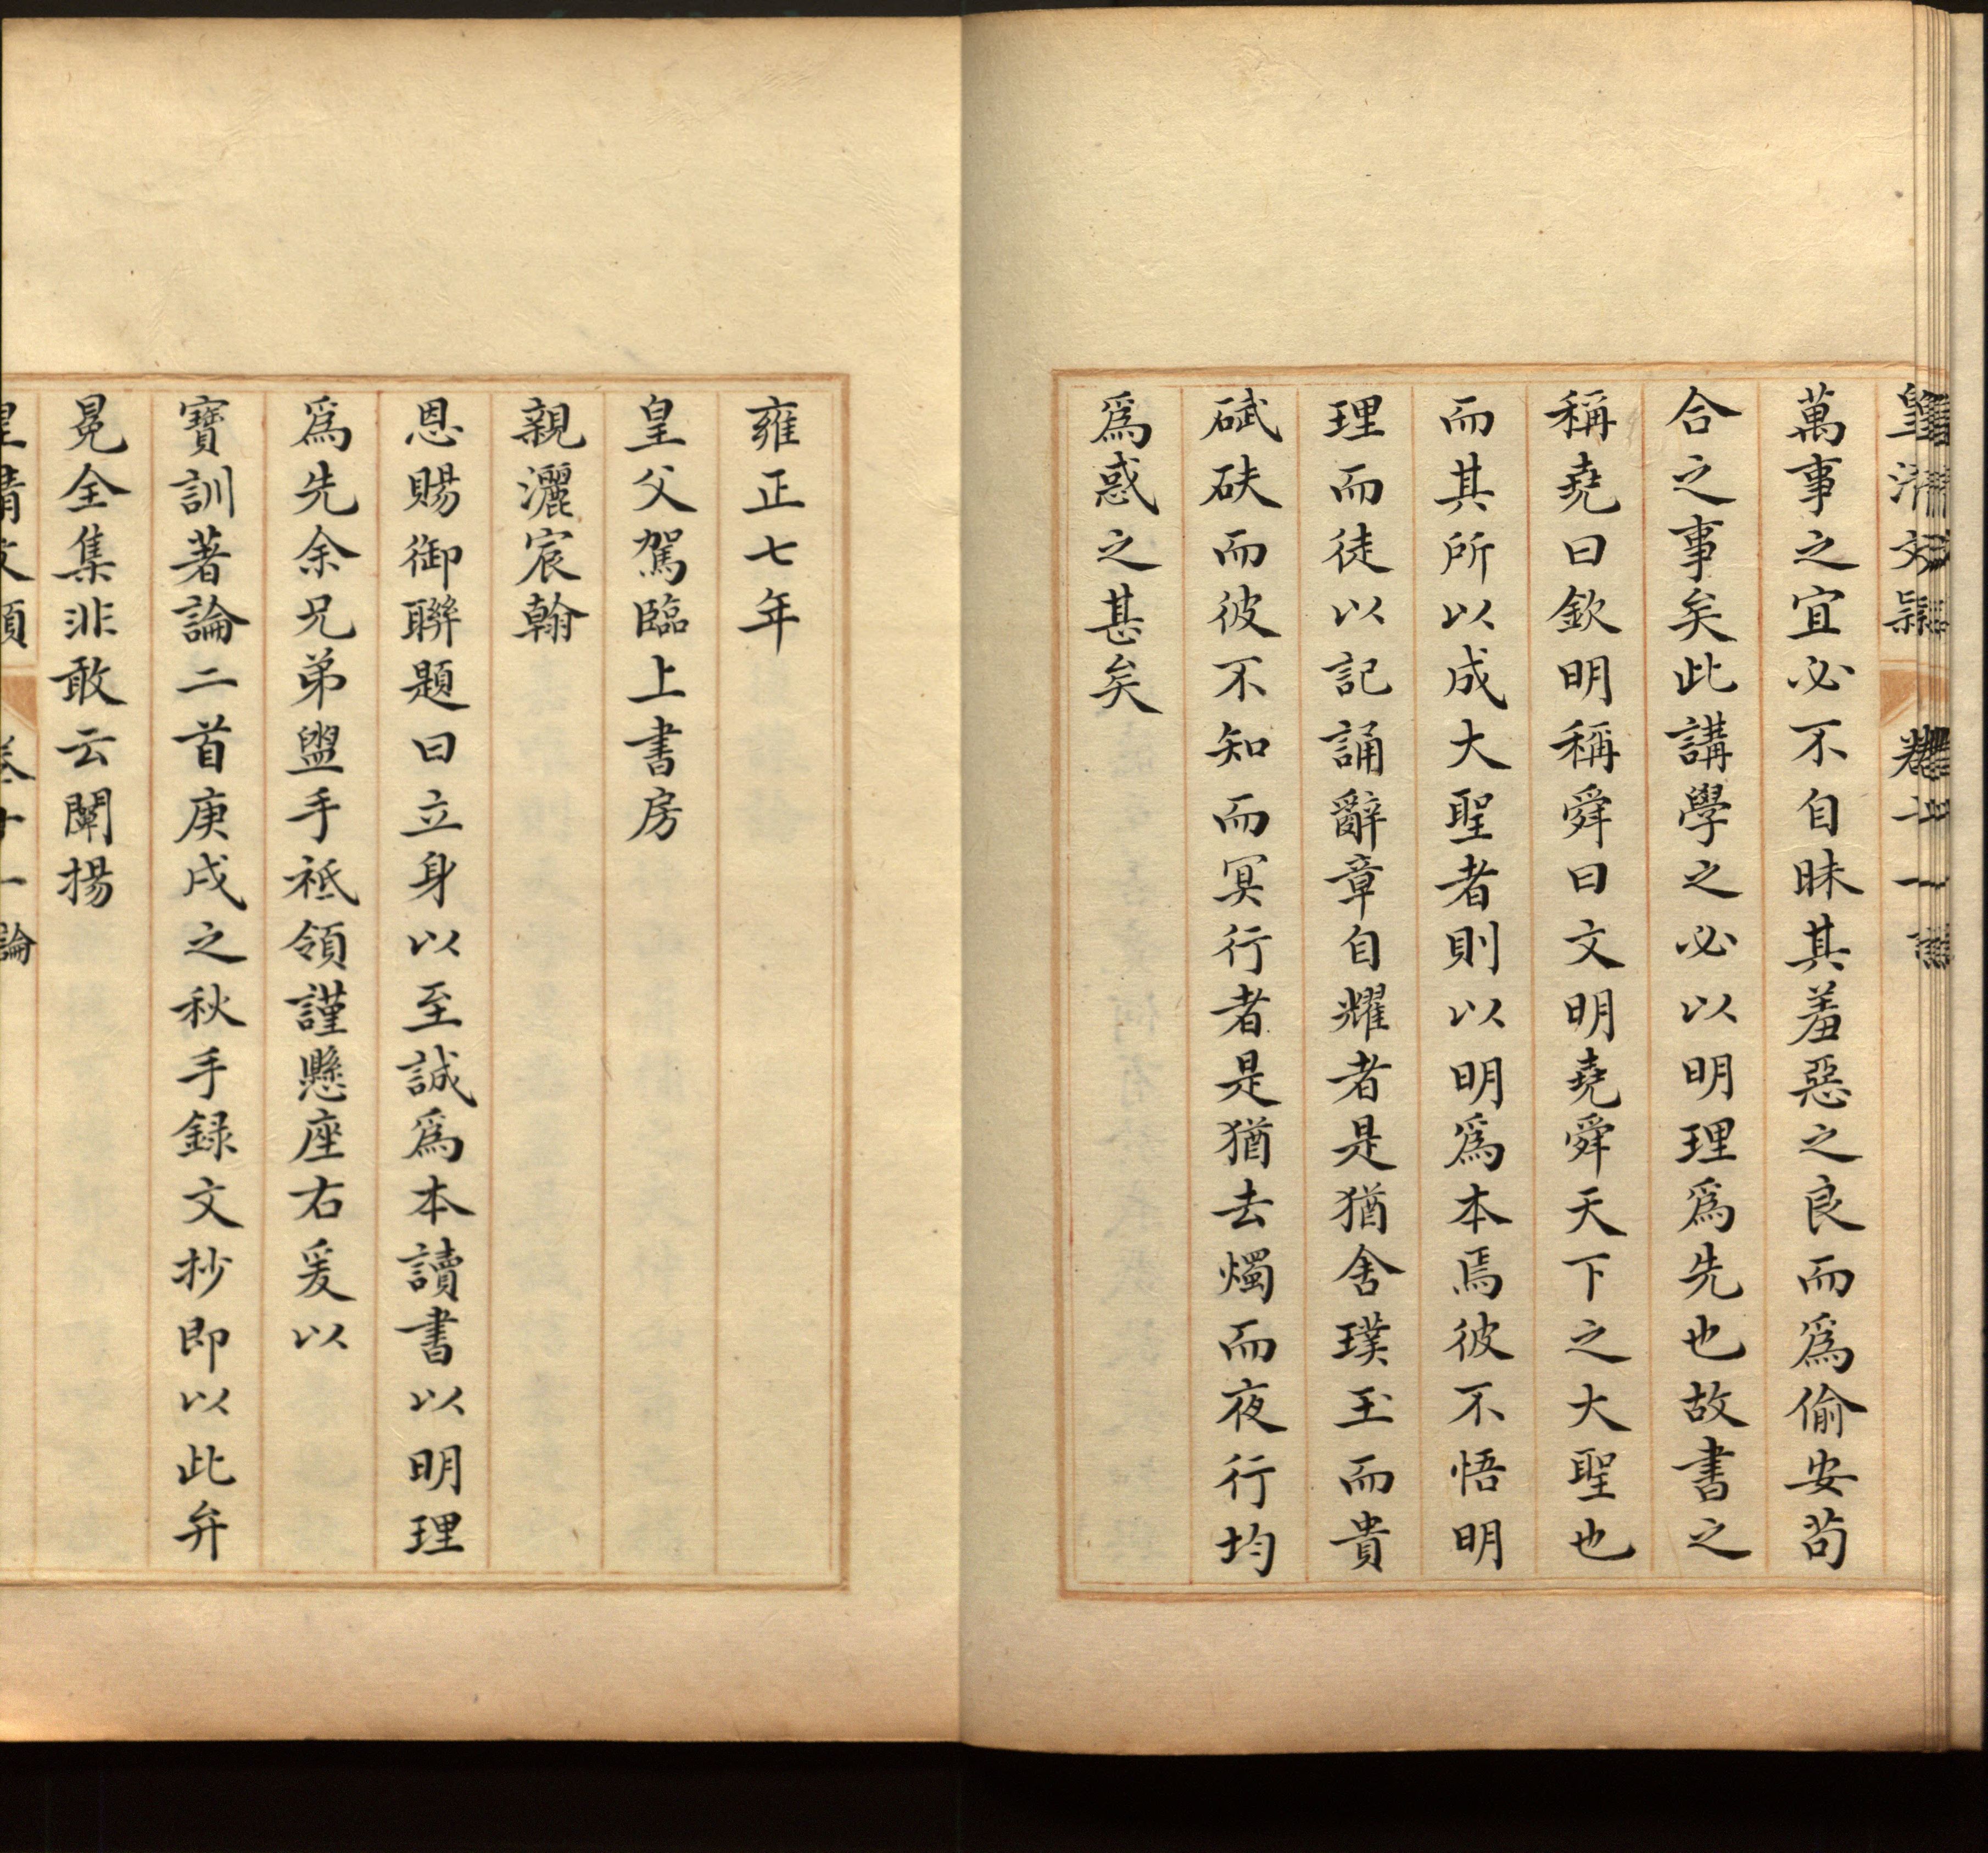 皇清文穎 卷十一 論
萬事之宜必不自昧其羞惡之良而爲偷安苟
合之事矣此講學之必以明理爲先也故書之
稱堯曰欽明稱舜曰文明堯舜天下之大聖也
而其所以成大聖者則以明爲本焉彼不悟明
理而徒以記誦辭章自耀者是猶舍璞玉而貴
碔砆而彼不知而冥行者是猶去燭而夜行均
爲惑之甚矣
雍正七年
皇父駕臨上書房
親灑宸翰
恩賜御聯題曰立身以至誠爲本讀書以明理
爲先余兄弟盥手祗領謹懸座右爰以
寶訓著論二首庚戌之秋手録文抄即以此弁
冕全集非敢云闡揚
皇清文穎 卷十一 論